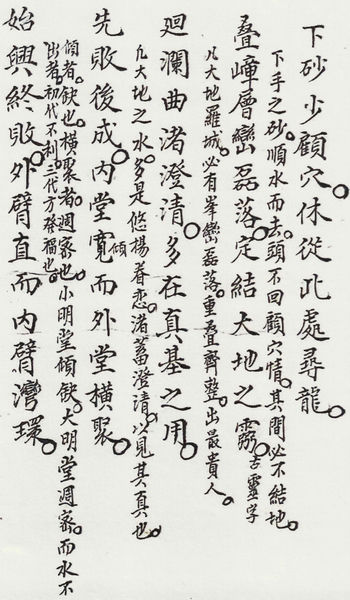 下砂少顧穴。休從此處尋龍。
下手之砂。順水而去。頭不回顧穴情。其間必不結地。
疊嶂層巒磊落。定結大地之竆。古靈字
凡大地羅城。必有峯巒磊落。重疊齊整。出最貴人。
廻瀾曲渚澄清。多在真基之用。
凢大地之水。多是悠楊眷恋。渚蓄澄清。以見其真也。
先敗後成。内堂寬而外堂橫聚。
傾
傾者。缺也。橫聚者。週密也。小明堂傾缺。大明堂週密。而水不
出者。初代不利。三代方發福也。
始興終敗。外臂直而内臂灣環。